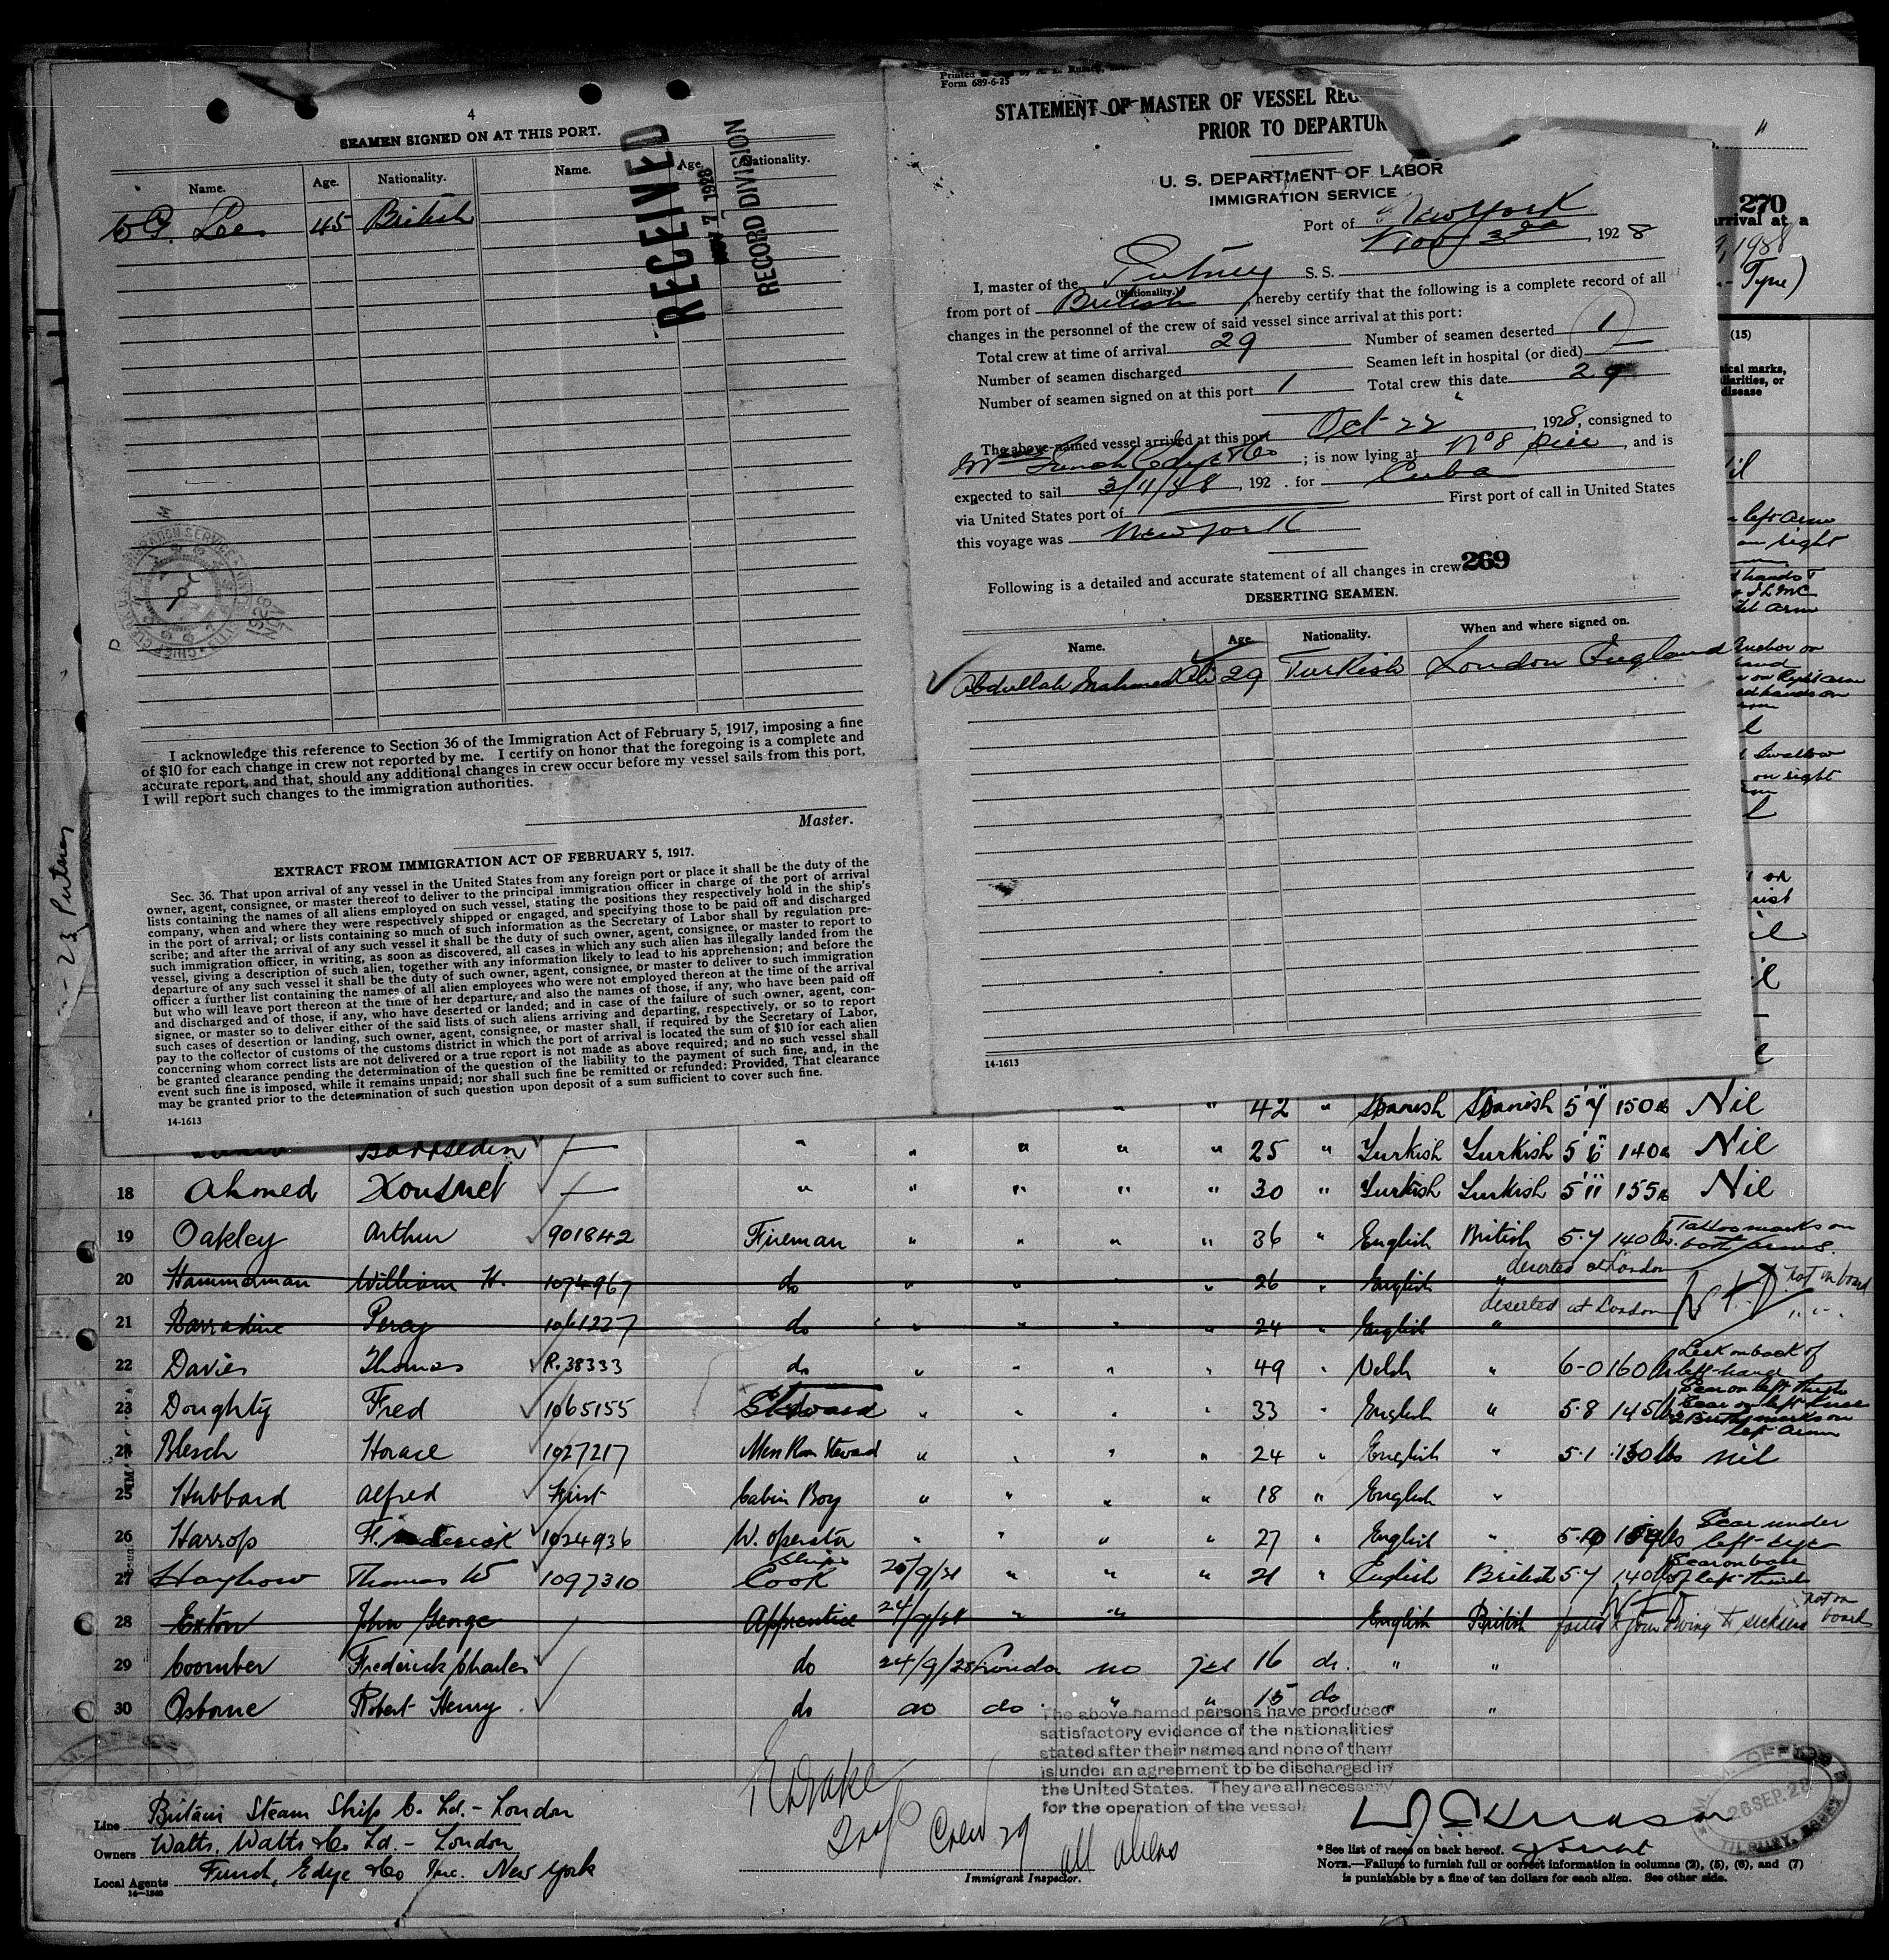 4
SEAMEN SIGNED ON AT THIS PORT.
Name. Age. Nationality. Name. Age. Nationality.
Lee 45 British
RECEIVED
NOV 7 1928
RECORD DIVISION
I acknowledge this reference to Section 36 of the Immigration Act of February 5, 1917, imposing a fine
of $10 for each change in crew not reported by me. I certify on honor that the foregoing is a complete and
accurate report, and that, should any additional changes in crew occur before my vessel sails from this port,
I will report such changes to the immigration authorities.
Master.
EXTRACT FROM IMMIGRATION ACT OF FEBRUARY 5, 1917.
Sec. 36. That upon arrival of any vessel in the United States from any foreign port or place it shall be the duty of the
owner, agent, consignee, or master thereof to deliver to the principal immigration officer in charge of the port of arrival
lists containing the names of all aliens employed on such vessel, stating the positions they respectively hold in the ship's
company, when and where they were respectively shipped or engaged, and specifying those to be paid off and discharged
in the port of arrival; or lists containing so much of such information as the Secretary of Labor shall by regulation pre-
scribe; and after the arrival of any such vessel it shall be the duty of such owner, agent, consignee, or master to report to
such immigration officer, in writing, as soon as discovered, all cases in which any such alien has illegally landed from the
vessel, giving a description of such alien, together with any information likely to lead to his apprehension; and before the
departure of any such vessel it shall be the duty of such owner, agent, consignee, or master to deliver to such immigration
officer a further list containing the names of all alien employees who were not employed thereon at the time of the arrival
but who will leave port thereon at the time of her departure, and also the names of those, if any, who have been paid off
and discharged and of those, if any, who have deserted or landed; and in case of the failure of such owner, agent, con-
signee, or master so to deliver either of the said lists of such aliens arriving and departing, respectively, or so to report
such cases of desertion or landing, such owner, agent, consignee, or master shall, if required by the Secretary of Labor,
pay to the collector of customs of the customs district in which the port of arrival is located the sum of $10 for each alien
concerning whom correct lists are not delivered or a true report is not made as above required; and no such vessel shall
be granted clearance pending the determination of the question of the liability to the payment of such fine, and, in the
event such fine is imposed, while it remains unpaid; nor shall such fine be remitted or refunded: Provided, That clearance
may be granted prior to the determination of such question upon deposit of a sum sufficient to cover such fine.
14-1613
23 Putney
Form 689-6-25
STATEMENT OF MASTER OF VESSEL
PRIOR TO
U. S. DEPARTMENT OF LABOR
IMMIGRATION SERVICE
Port of New York
Nov 3rd, 1928
I, master of the Putney S. S.
(Nationality.)
from port of British, hereby certify that the following is a complete record of all
changes in the personnel of the crew of said vessel since arrival at this port:
Total crew at time of arrival 29 Number of seamen deserted 1
Number of seamen discharged Seamen left in hospital (or died)
Number of seamen signed on at this port 1 Total crew this date 29
The above-named vessel arrived at this port Oct 22, 1928, consigned to
Funch Edye & Co; is now lying at No 8 pier, and is
expected to sail 3/11/28, 192 . for Cuba
via United States port of First port of call in United States
this voyage was New York
Following is a detailed and accurate statement of all changes in crew 269
DESERTING SEAMEN.
Name. Age. Nationality. When and where signed on.
Abdullah Mahmed Ali 29 Turkish London England
14-1613
270
arrival at a
Tyne)
(15)
left arm
on right
hands
arm
Anchor on
on Right arm
hands on
Swallow
on right
42 " Spanish Spanish 5'4" 150 lb Nil
" " " " " 25 " Turkish Turkish 5'6" 140 Nil
18 Ahmed " " " " " 30 " Turkish Turkish 5'11" 155 lb Nil
19 Oakley Arthur 901842 Fireman " " " " 36 " English British 5.7 140 lbs. Tattoo marks on both arms.
20 Hammerman William H. 1074967 do " " " " 26 " English " deserted at London not on board
21 Barradine Percy 1061227 do " " " " 24 " English " deserted at London " " "
22 Davies Thomas R.38333 do " " " " 49 " Welsh " 6-0 160 lbs back of left hand
23 Doughty Fred 1065155 Steward " " " " 33 " English " 5.8 145 lbs Scar on left thigh Scar on left knee 2 Birth marks on left arm
24 Blesch Horace 1027217 Mess Rm Steward " " " " 24 " English " 5.1 130 lbs nil
25 Hubbard Alfred First Cabin Boy " " " " 18 " English "
26 Harrop Frederick 1024936 W. operator " " " " 27 " English " 5.10 lbs Scar under left eye
27 Hayhow Thomas W 1097310 Ships Cook 20/9/28 " " " 21 " English British 5.7 140 lbs Scar on back of left thumb
28 Exton John George Apprentice 24/9/28 " " English British failed to join owing to sickness not on board
29 Coomber Frederick Charles do 24/9/28 London no yes 16 do. " "
30 Osborne Robert Henry do do do " " 15 do " "
The above named persons have produced
satisfactory evidence of the nationalities
stated after their names and none of them
is under an agreement to be discharged in
the United States. They are all necessary
for the operation of the vessel.
Line Britain Steam Ship Co. Ld. - London
Owners Watts, Watts & Co Ld. - London
Local Agents Funch, Edye & Co Inc. New York
14-1240
Crew 29 all aliens
Immigrant Inspector.
26 SEP. 28
TILBURY, ESSEX
*See list of races on back hereof.
NOTE.—Failure to furnish full or correct information in columns (3), (5), (6), and (7)
is punishable by a fine of ten dollars for each alien. See other side.